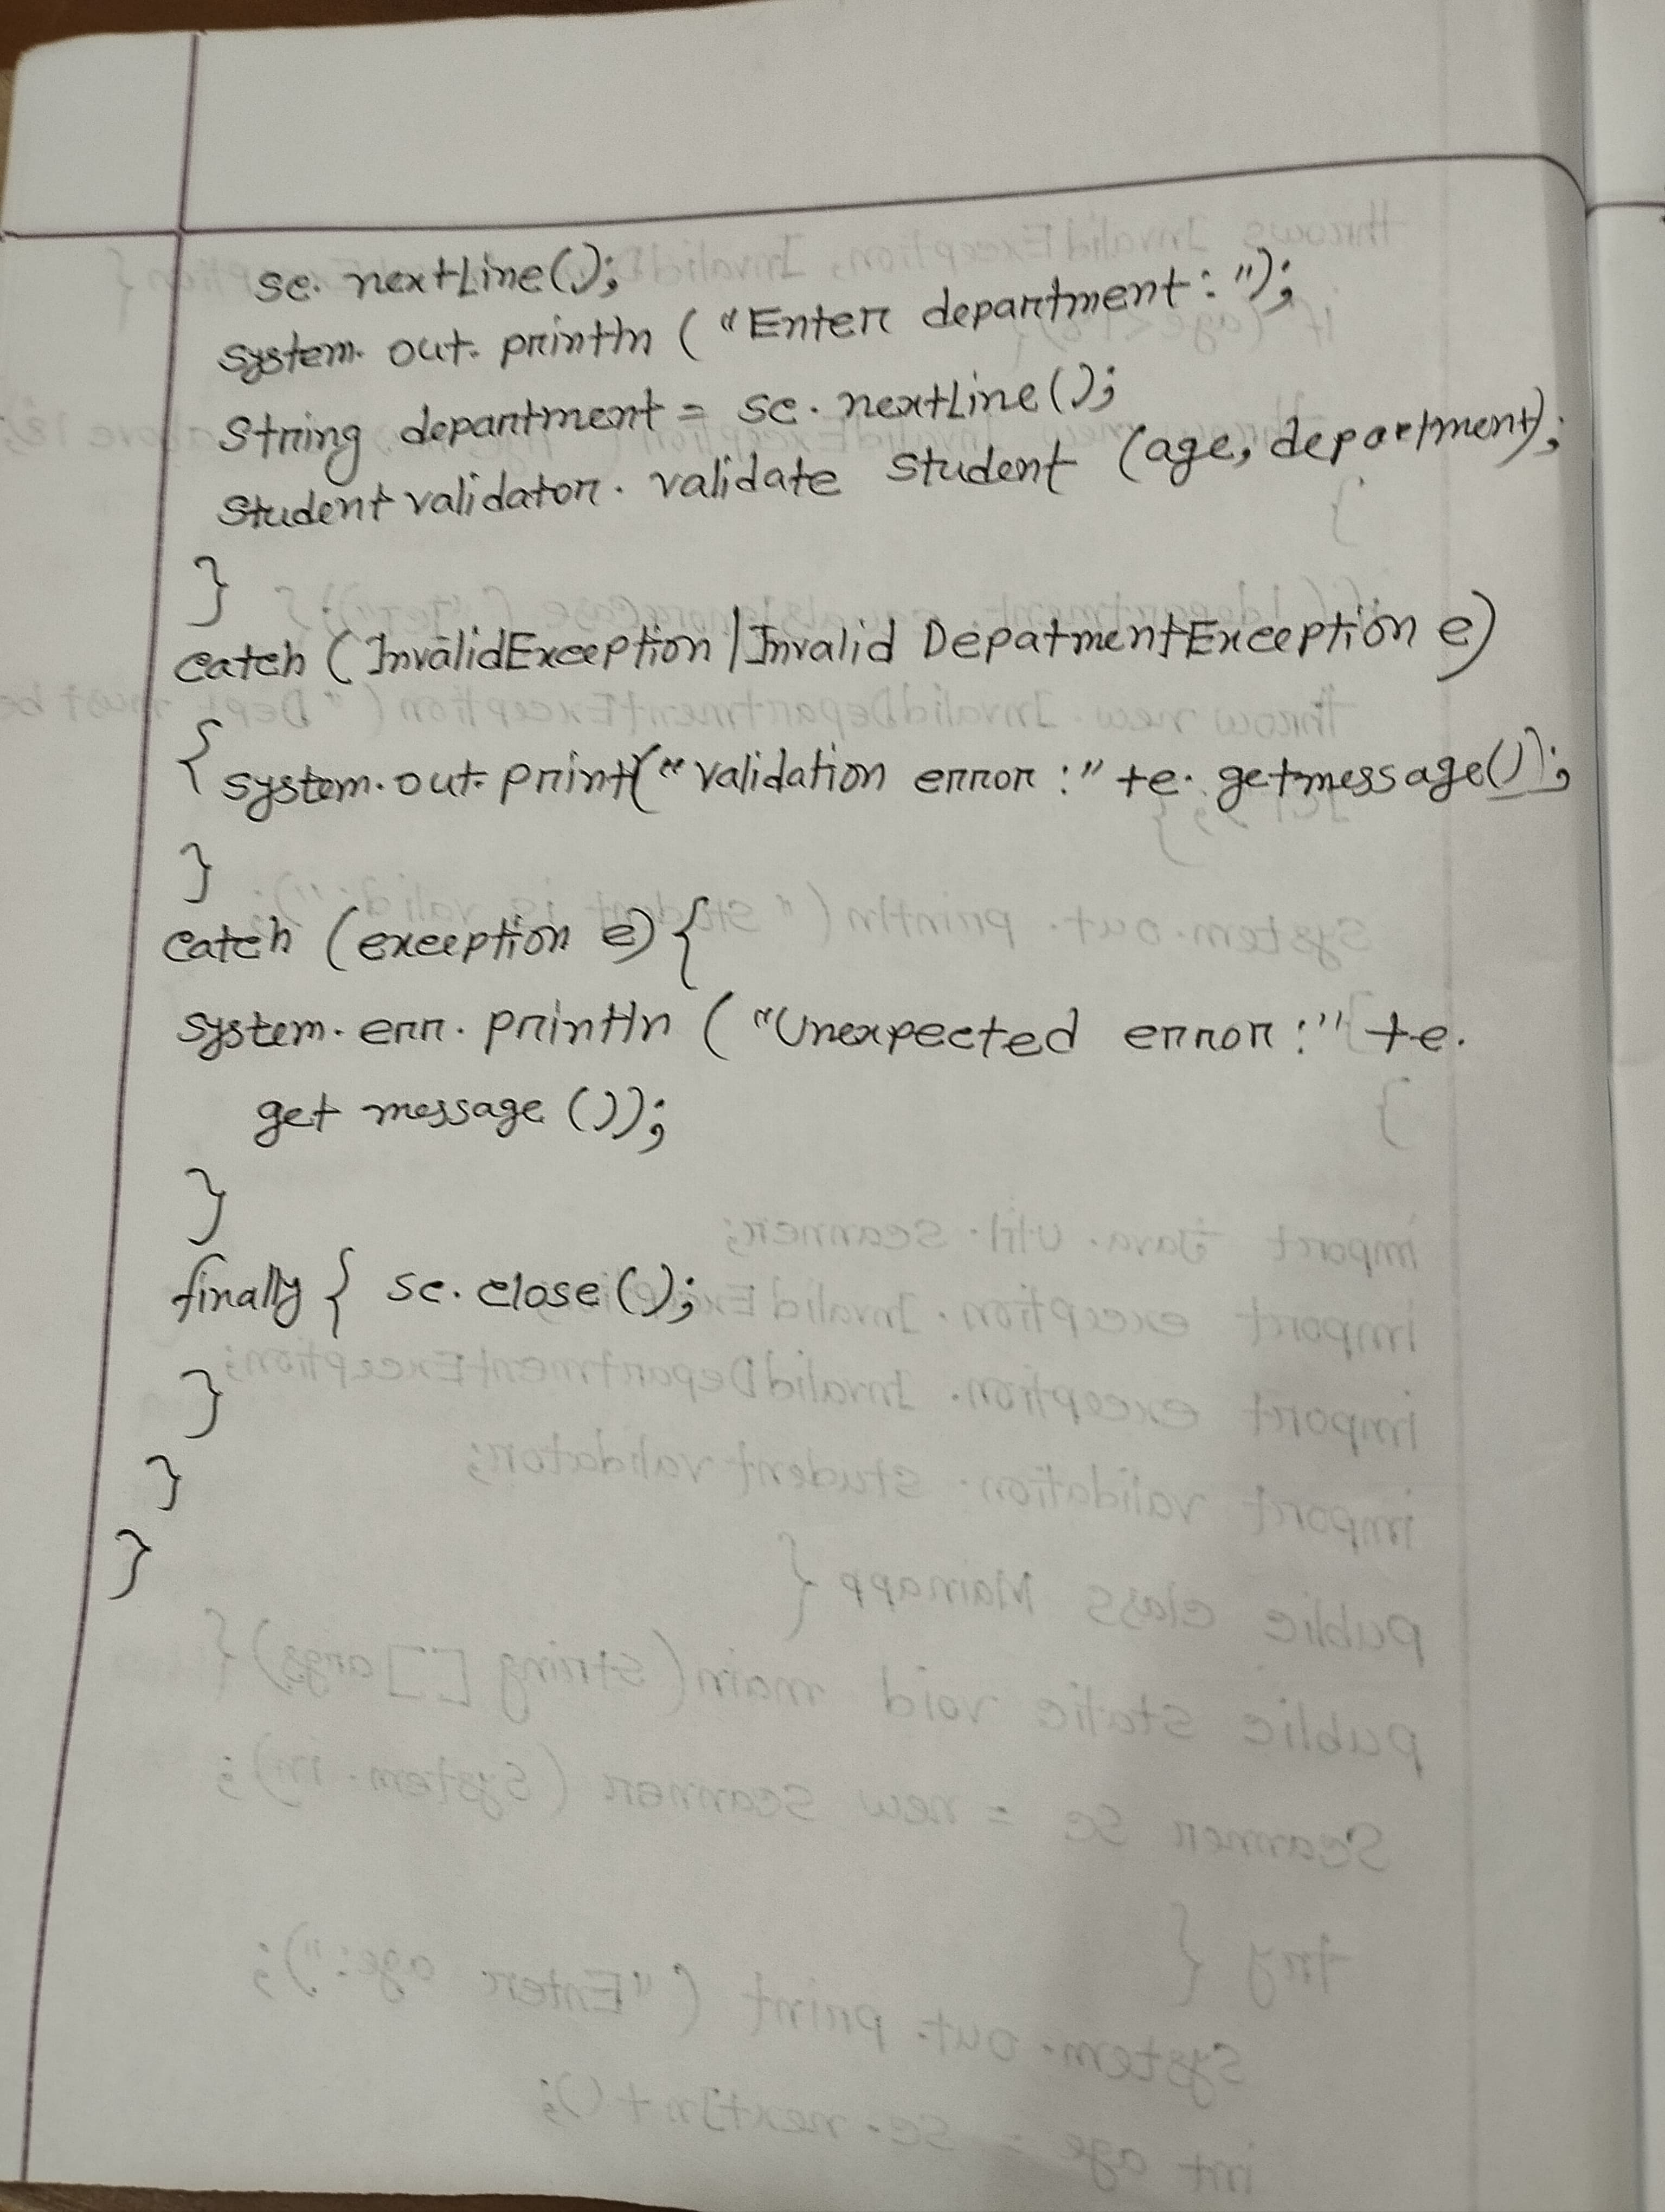 sc. nextLine();
system. out. println ("Enter department: ");
String department = sc. nextLine();
student validator. validate student (age, department);
}
catch (InvalidException | Invalid DepatmentException e)
{ system. out. print("validation error :" +e. getmessage());
}
catch (exception e) {
system. err. println ("Unexpected error:" +e.
get message ());
}
finally { sc. close ();
}
}
}